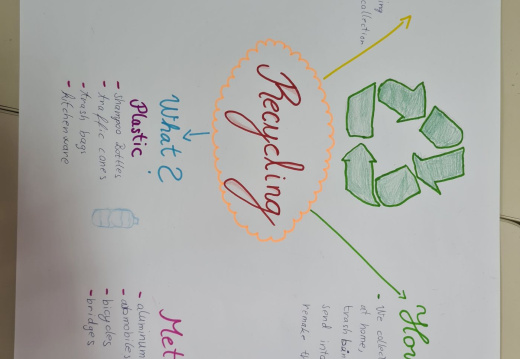 ing
collection
Recycling
What?
Plastic
- Shampoo Bottles
- traffic cones
- trash bags
- kitchenware
How
- We collect
at home,
trash
send into
remake
Met
- aluminum
- bicycles
- bridges